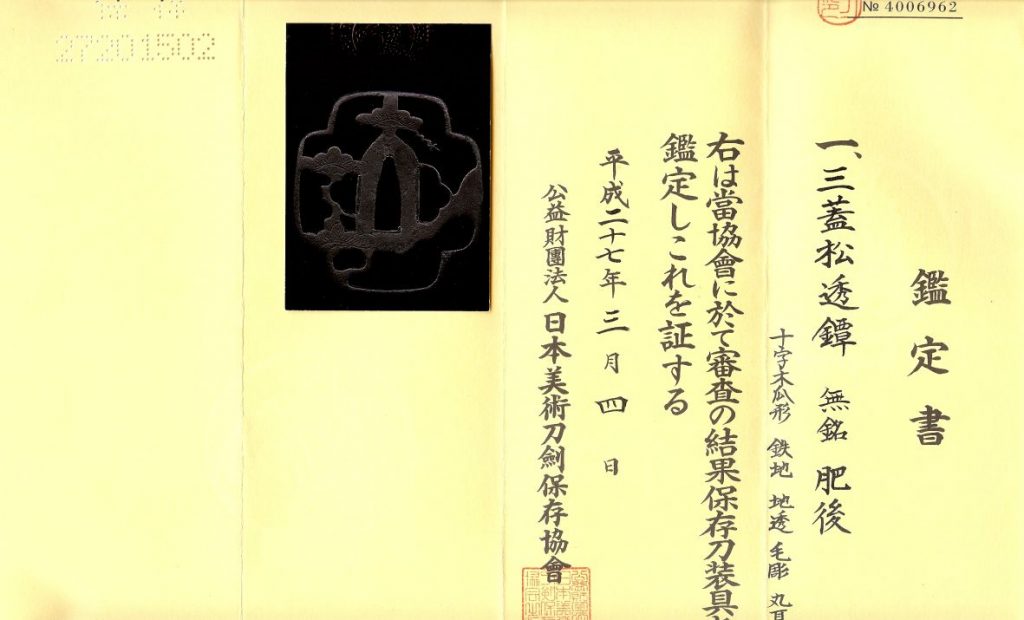 № 4006962
鑑定書
一、三蓋松透鐔 無銘 肥後
十字木瓜形 鉄地 地透 毛彫 丸耳
右は當協會に於て審査の結果保存刀装具
鑑定しこれを証する
平成二十七年三月四日
公益財團法人 日本美術刀劍保存協會
27201502